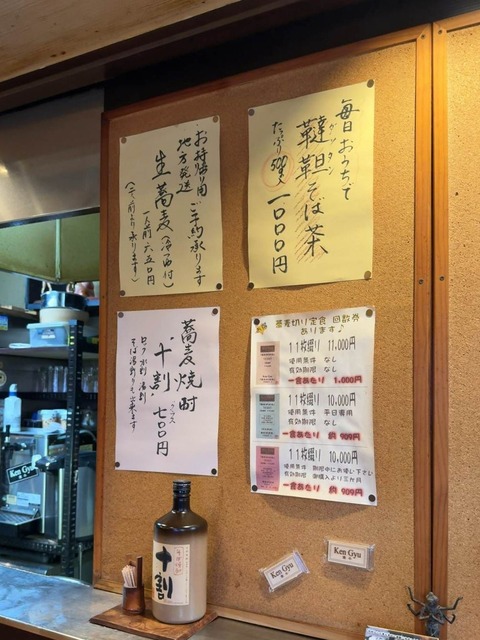 お持ち帰り用 ご予約承ります
地方発送
生蕎麦(つゆ付)
一人前 六五〇円
(二人前より承ります)
毎日おうちで
ダッタン
韃靼そば茶
たっぷり500g入
一〇〇〇円
蕎麦焼酎
十割
グラス
七〇〇円
ロック 水割 湯割
そば湯割りも出来ます
蕎麦切り定食 回数券
あります♪
11枚綴り 11,000円
使用条件 なし
有効期限 なし
一食あたり 1,000円
11枚綴り 10,000円
使用条件 平日専用
有効期限 なし
一食あたり 約909円
11枚綴り 10,000円
使用条件 期限中にお使い下さい
有効期限 御購入より三か月
一食あたり 約909円
Ken Gyu
Ken Gyu
Ken Gyu
十割